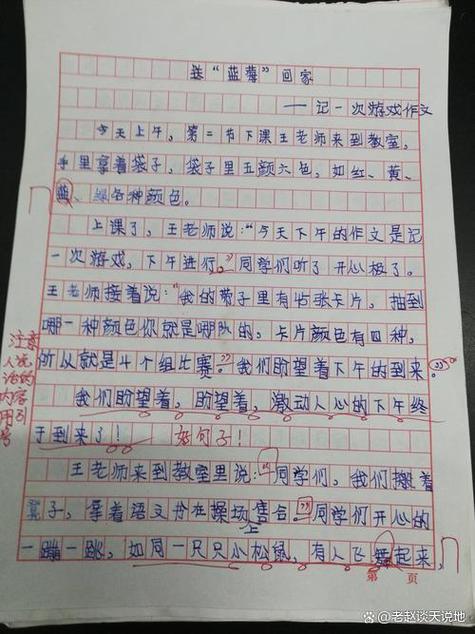 送“蓝莓”回家
——记一次游戏作文
今天上午，第二节下课王老师来到教室，
手里拿着袋子，袋子里五颜六色，如红、黄、
蓝、绿各种颜色。
上课了，王老师说：“今天下午的作文是记
一次游戏，下午进行。”同学们听了开心极了。
王老师接着说：“我的袋子里有45张卡片，抽到
哪一种颜色你就是哪队的，卡片颜色有四种，
所以就是4个组比赛。”我们盼望着下午的到来。
我们盼望着，盼望着，激动人心的下午终
于到来了！ 好句子！
王老师来到教室里说：“同学们，我们搬着
凳子，拿着语文书在操场上集合。”同学们开心的
一蹦一跳，如同一只只小松鼠，有人飞舞起来，
注意
人说
话的
内容
用引
号
第 页
@老赵谈天说地